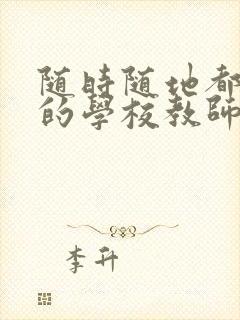 随時随地都
的學校教師
李升